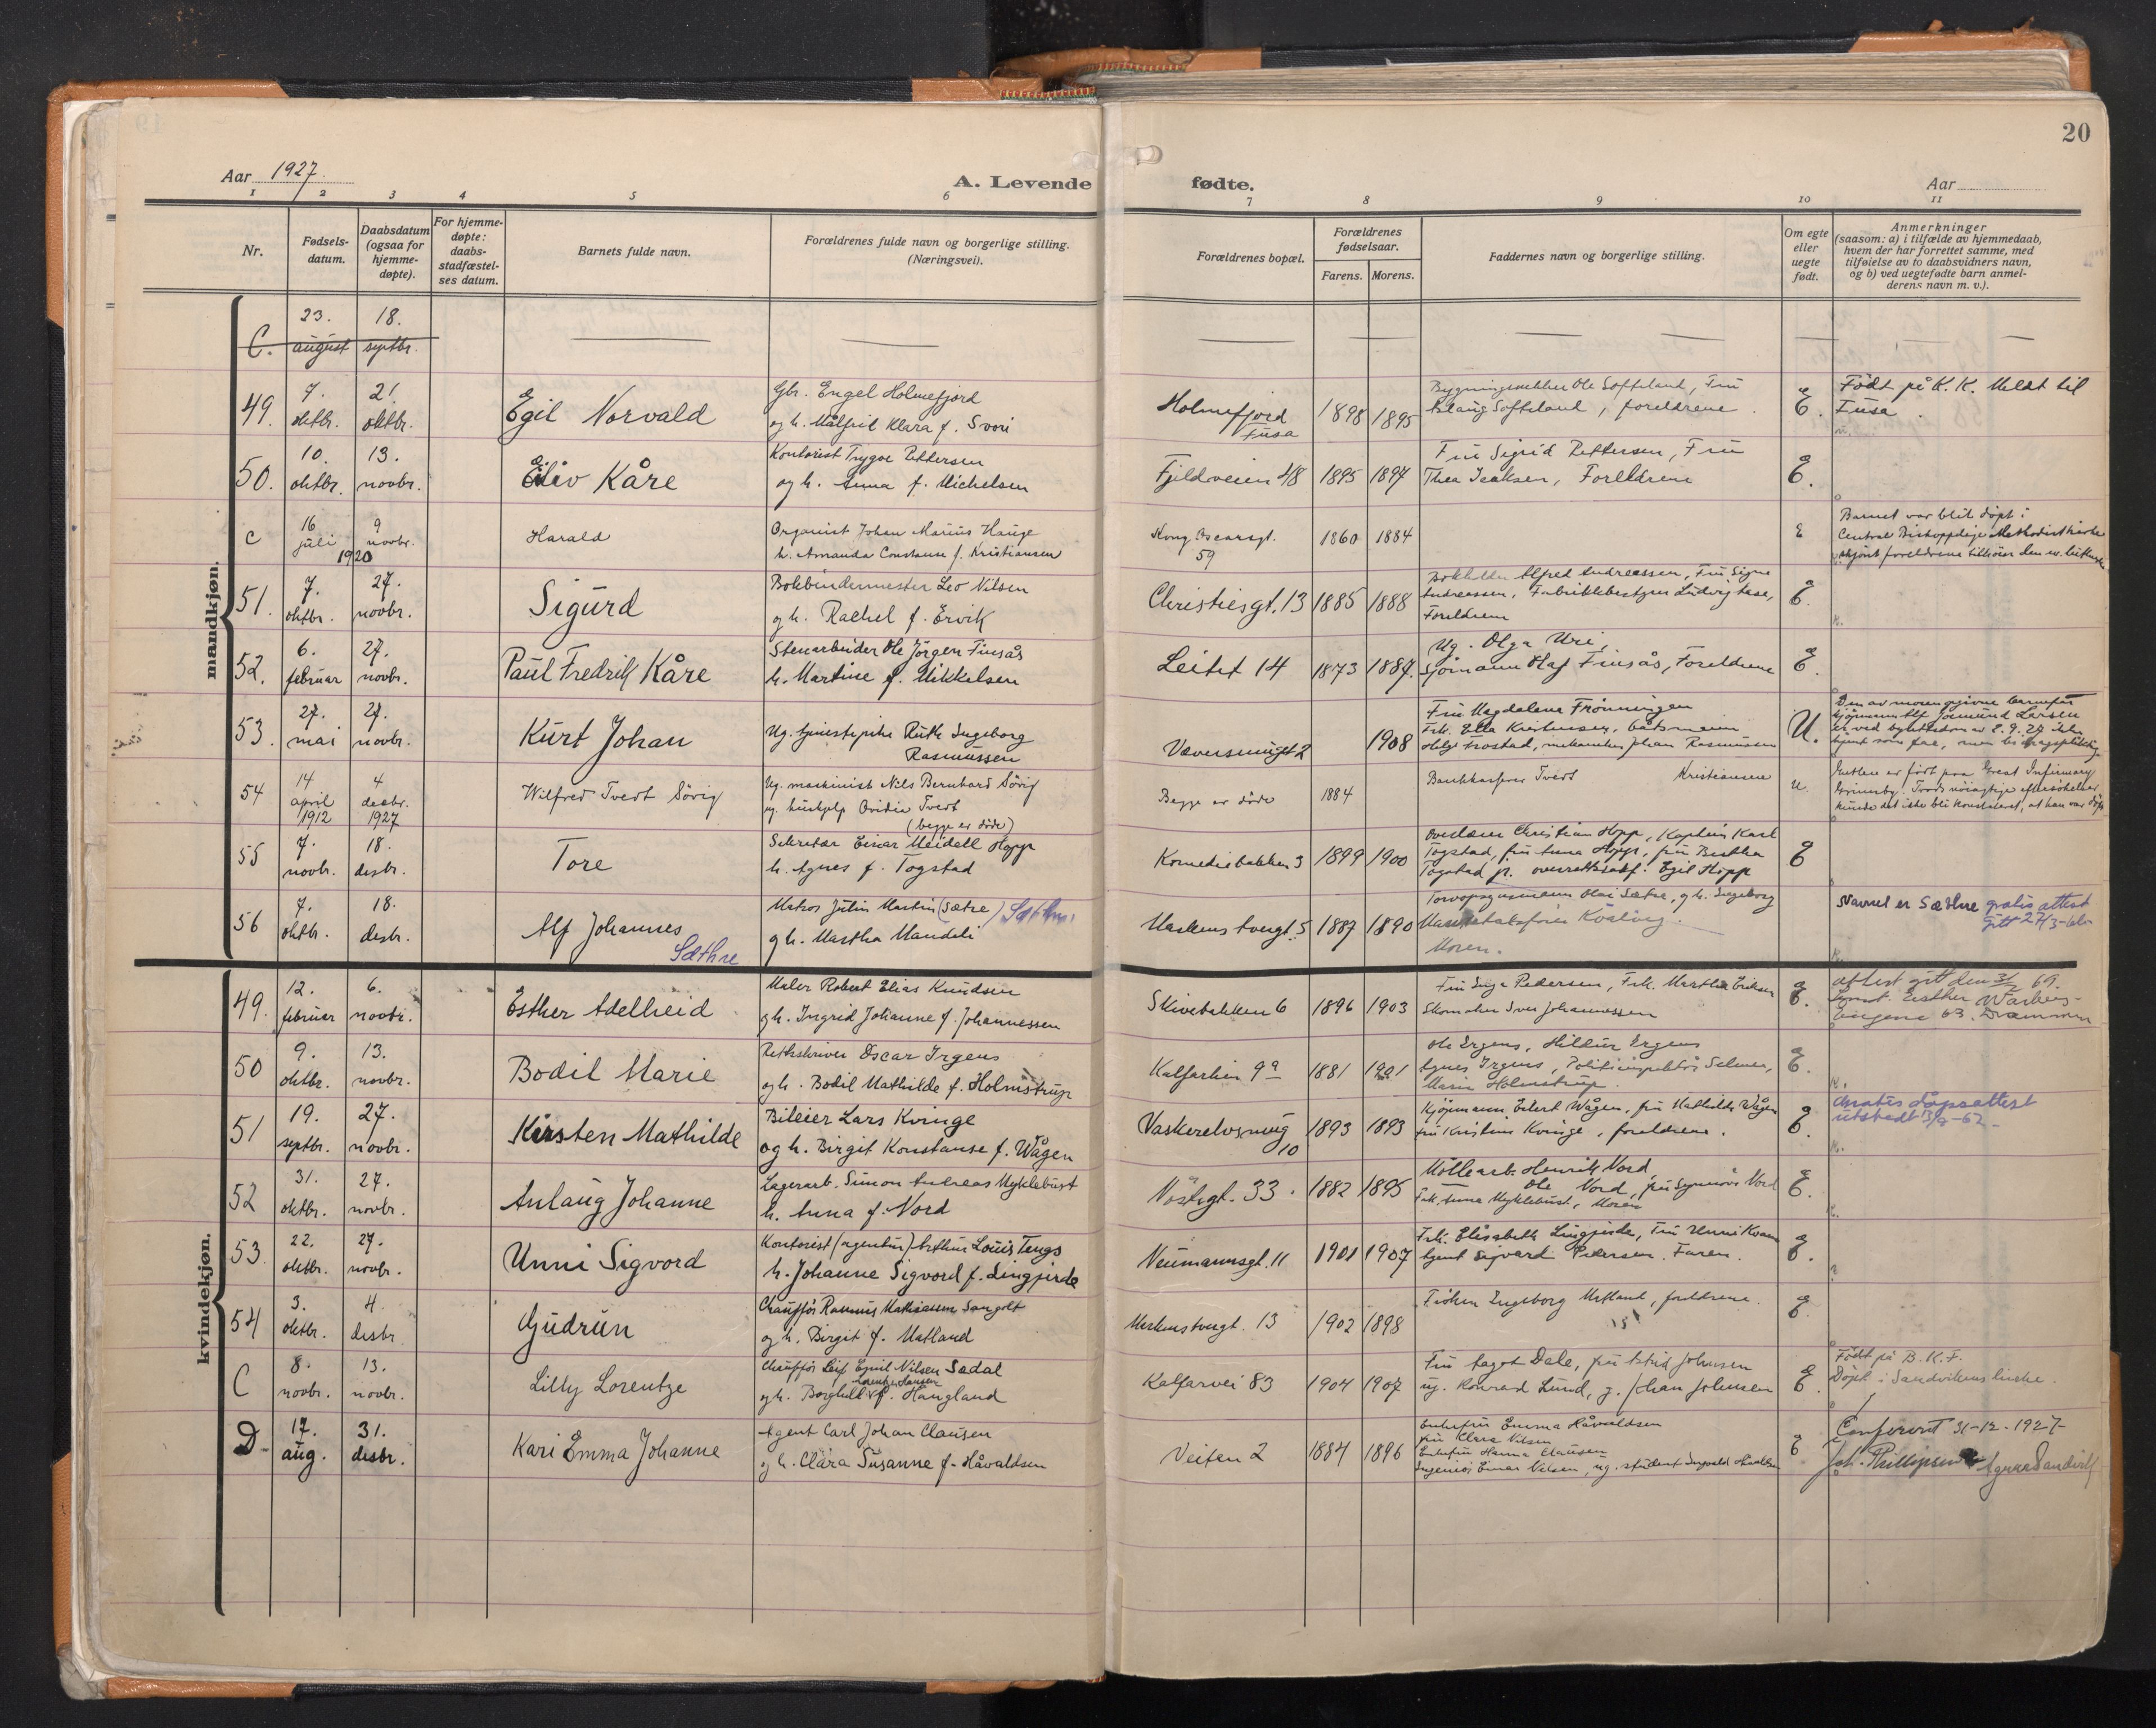 20
Aar 1927.
A. Levende fødte.
Aar
1 2 3 4 5 6 7 8 9 10 11
Nr.
Fødsels-
datum.
Daabsdatum
(ogsaa for
hjemme-
døpte).
For hjemme-
døpte:
daabs-
stadfæstel-
ses datum.
Barnets fulde navn.
Forældrenes fulde navn og borgerlige stilling.
(Næringsvei).
Forældrenes bopæl.
Forældrenes
fødselsaar.
Farens. Morens.
Faddernes navn og borgerlige stilling.
Om egte
eller
uegte
født.
Anmerkninger
(saasom: a) i tilfælde av hjemmedaab,
hvem der har forrettet samme, med
tilføielse av to daabsvidners navn,
og b) ved uegtefødte barn anmel-
derens navn m. v.).
mandkjøn.
C.
23.
august
18.
septbr.
49.
7.
oktbr.
21.
oktbr.
Egil Norvald
Gbr. Engel Holmefjord
og h. Målfrid Klara f. Svori
Holmefjord
Fusa
1898 1895
Ole Søfteland, Fru
Aslaug Søfteland, foreldrene.
E.
Født på K. K. Meldt til
Fusa.
50.
10.
oktbr.
13.
novbr.
Eiliv Kåre
Kontorist Trygve Pettersen
og h. Anna f. Michelsen
Fjeldveien 48
1895 1897
Fru Sigrid Pettersen, Fru
Thea Isaksen, Foreldrene
E.
c
16
juli
1920
9
novbr.
Harald
Organist Johan Marius Hauge
h. Amanda Constanse f. Kristiansen
Kong Oscarsgt.
59
1860 1884
E
Barnet var blit døpt i
Central Biskoppelige Methodistkirke
skjønt foreldrene tilhører den ev.
51.
7.
oktbr.
27.
novbr.
Sigurd
Bokbindermester Leo Nilsen
og h. Rachel f. Ervik
Christiesgt. 13
1885 1888
Bokholder Alfred Andreassen, Fru Signe
Andreassen, Ludvig
Foreldrene
E.
52.
6.
februar
27.
novbr.
Paul Fredrik Kåre
Stenarbeider Ole Jørgen Finsås
h. Martine f. Mikkelsen
Leitet 14
1873 1887.
Ug. Olga Uri,
Sjømann Olaf Finsås, Foreldrene
E.
53.
27.
mai
27.
novbr.
Kurt Johan
Ug. tjenestepike Ruth Ingeborg
Rasmussen
Væversmuget 2
1908
Fru Magdalena Frönningen
Frk. Ella Kristensen, båtsmann
Helge Frostad, mekaniker Johan Rasmussen
U.
Den av moren opgivne barnefar
Alf Larsen
er ved av 8. 9. 27 ikke
som far, men bidragspliktig
54
14
april
1912
4
desbr.
1927
Wilfred Tvedt Sörvig
Ug. maskinist Nils Bernhard Sörvig
ug. hushjelp Ovidia Tvedt
(begge er døde)
Begge er døde
1884
Bankkasserer Tvedt Kristiansen
u.
Gutten er født paa Great Infirmary
Grimsby. Trods nöiagtige efterforskelser
kunde det ikke bli konstateret, at han var døpt
55
7.
novbr.
18.
desbr.
Tore
Sekretær Einar Meidell Hopp
h. Agnes f. Togstad
Komediebakken 3
1899 1900
Overlærer Christian Hopp, Kaptein Karl
Togstad, fru Anna Hopp, fru Bertha
Togstad jr. overrettssakf. Egil Hopp
E
56
7.
oktbr.
18.
desbr.
Alf Johannes
Sæthre
Matros Julin Martin (Sætre) Sæthre
og h. Martha Mandeli
Markens tvergt. 5
1887 1890
Olai Sætre, og h. Ingeborg
Moren.
Navnet er Sæthre gratis attest
gitt 27/3-
kvindekjøn.
49.
12.
februar
6.
novbr.
Esther Adelheid
Maler Robert Elias Knudsen
og h. Ingrid Johanne f. Johannessen
Skivebakken 6
1896 1903
Fru Inga Pedersen, Frk. Martha Eriksen
Skomaker Sven Johannessen
E.
attest gitt den 3/2 69.
Esther
63. Drammen
50
9.
oktbr.
13.
novbr.
Bodil Marie
Rettsskriver Oscar Irgens
og h. Bodil Mathilde f. Holmstrup
Kalfarlien 9a
1881 1901
Ole Irgens, Hildur Irgens
Agnes Irgens, Politiinspektör Selmer,
Marie Holmstrup.
E.
51
19.
septbr.
27.
novbr.
Kirsten Mathilde
Bileier Lars Kvinge
og h. Birgit Konstanse f. Wågen
Vaskerelvsmug
10
1893 1893
Kjöpmann Eilert Wågen, fru Mathilde Wågen
fru Kristine Kvinge, foreldrene.
E.
Gratis dåpsattest
utstedt 13/9-62
52
31.
oktbr.
27.
novbr.
Anlaug Johanne
Lagerarb. Simon Andreas Myklebust
h. Anna f. Nord
Nöstegt. 33.
1882 1895
Möllearb. Henrik Nord,
Ole Nord, fru Synnöve Nord
Frk. Anna Myklebust, Moren
E.
53
22.
oktbr.
27.
novbr.
Unni Sigvord
Kontorist (agentur) Arthur Louis Tengs
h. Johanne Sigvord f. Lingjerde
Neumannsgt. 11
1901 1907
Frk. Elisabeth Lingjerde, Fru Unni Kvam
Agent Sigvard Pedersen. Faren.
E.
54
3.
oktbr.
4.
desbr.
Gudrun
Chaufför Rasmus Mathiassen Sangolt
og h. Birgit f. Matland
Markenstvergt. 13
1902 1898
Fröken Ingeborg Matland, foreldrene.
E.
C
8.
novbr.
13.
novbr.
Lilly Lorentze
Chaufför Leif Egil Nilsen Sædal
Lorentze Hansen
og h. Borghild f. Haugland
Kalfarvei 83
1904 1907
Fru Aagot Dale, fru Astrid Johnsen
ug. Konrad Lund, g. Johan Johnsen
E.
Født på B. K. F.
Døpt i Sandvikens kirke.
D
17.
aug.
31.
desbr.
Kari Emma Johanne
Agent Carl Johan Clausen
og h. Clara Susanne f. Håvaldsen
Veiten 2
1884 1896
Enkefru Emma Håvaldsen
fru Klara Nilsen
Enkefru Hanna Clausen
Ingeniör Einar Nilsen, ug. student Ingvald Håvaldsen
E
Conferert 31-12-1927-
Joh. Phillipsen Agnes Sandvik